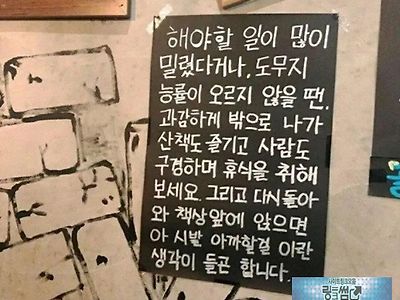 해야할 일이 많이
밀렸다거나, 도무지
능률이 오르지 않을 땐,
과감하게 밖으로 나가
산책도 즐기고 사람도
구경하며 휴식을 취해
보세요. 그리고 다시 돌아
와 책상앞에 앉으면
아 시발 아까할걸 이란
생각이 들곤 합니다.